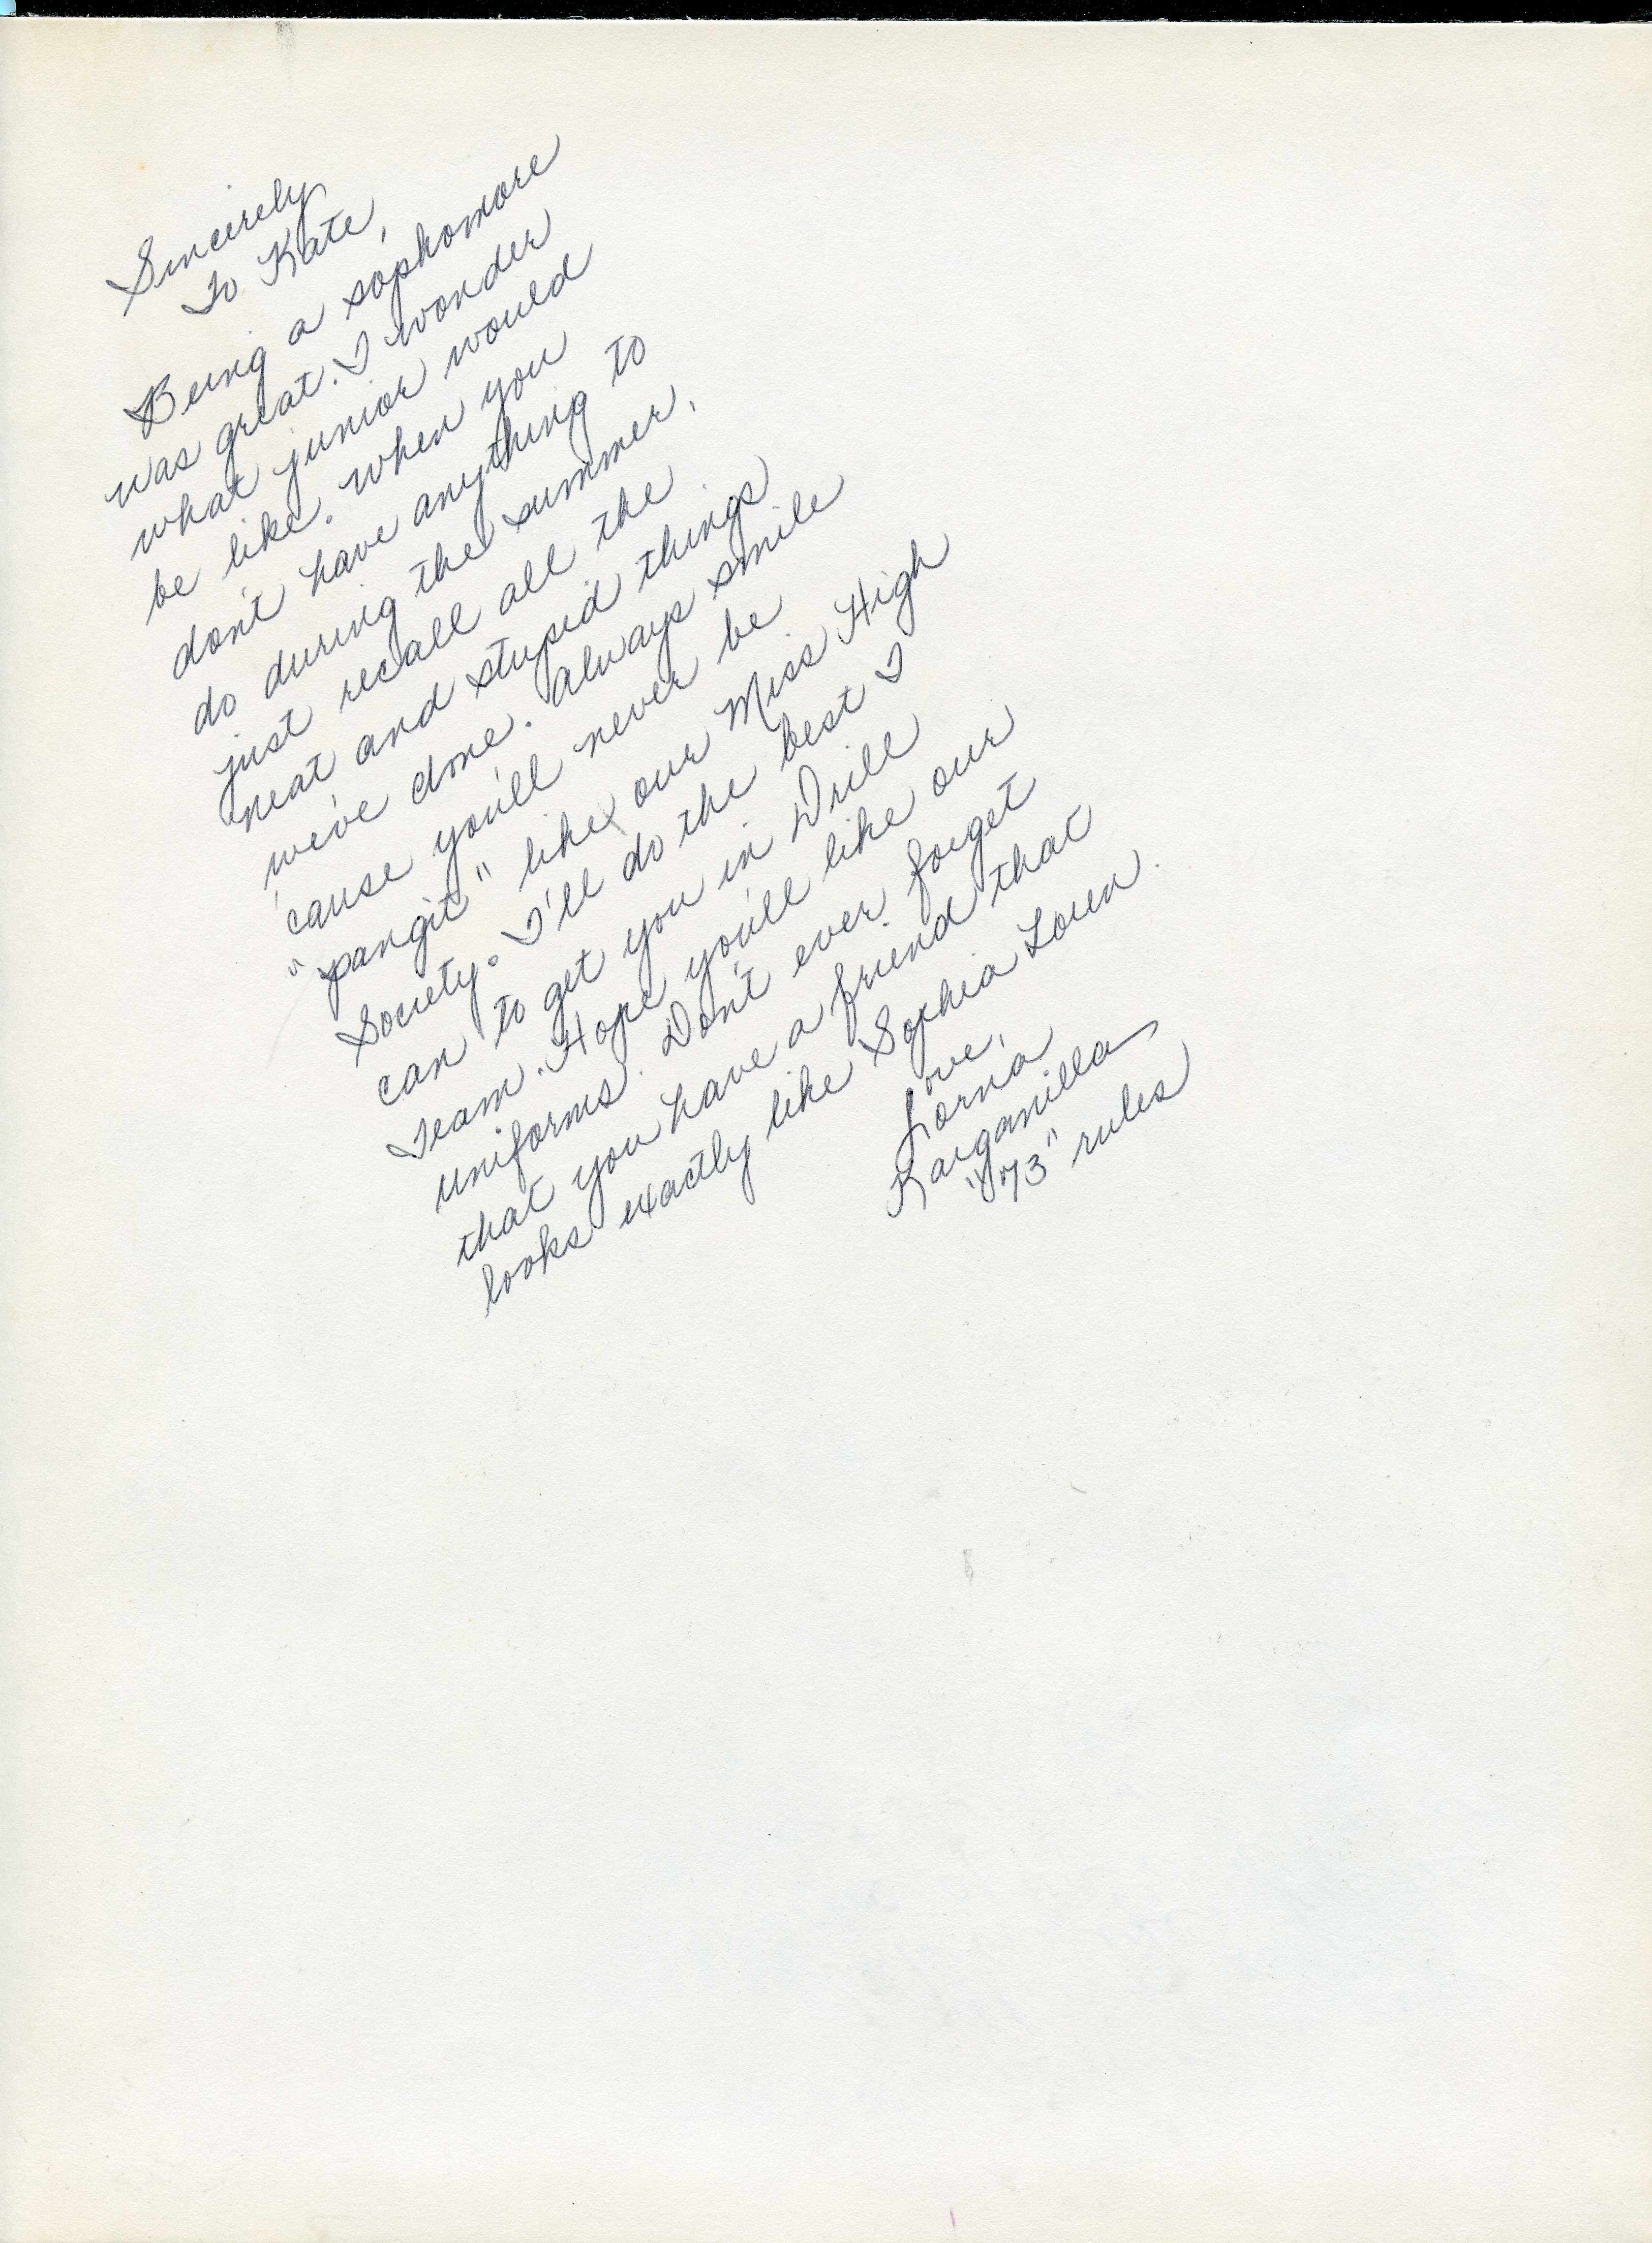 Sincerely
To Kate,
Being a sophomore
was great. I wonder
what junior would
be like. When you
don't have anything to
do during the summer,
just recall all the
neat and stupid things
we've done. Always smile
'cause you'll never be
"pangit" like our Miss High
Society. I'll do the best I
can to get you in Drill
Team. Hope you'll like our
uniforms. Don't ever forget
that you have a friend that
looks exactly like Sophia Loren.
Love,
Lorna
Karganilla
"73" rules